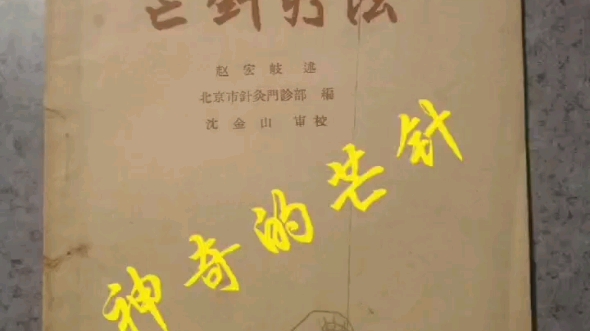 芒针疗法
赵宏岐 述
北京市針灸門診部 編
沈金山 审校
神奇的芒针